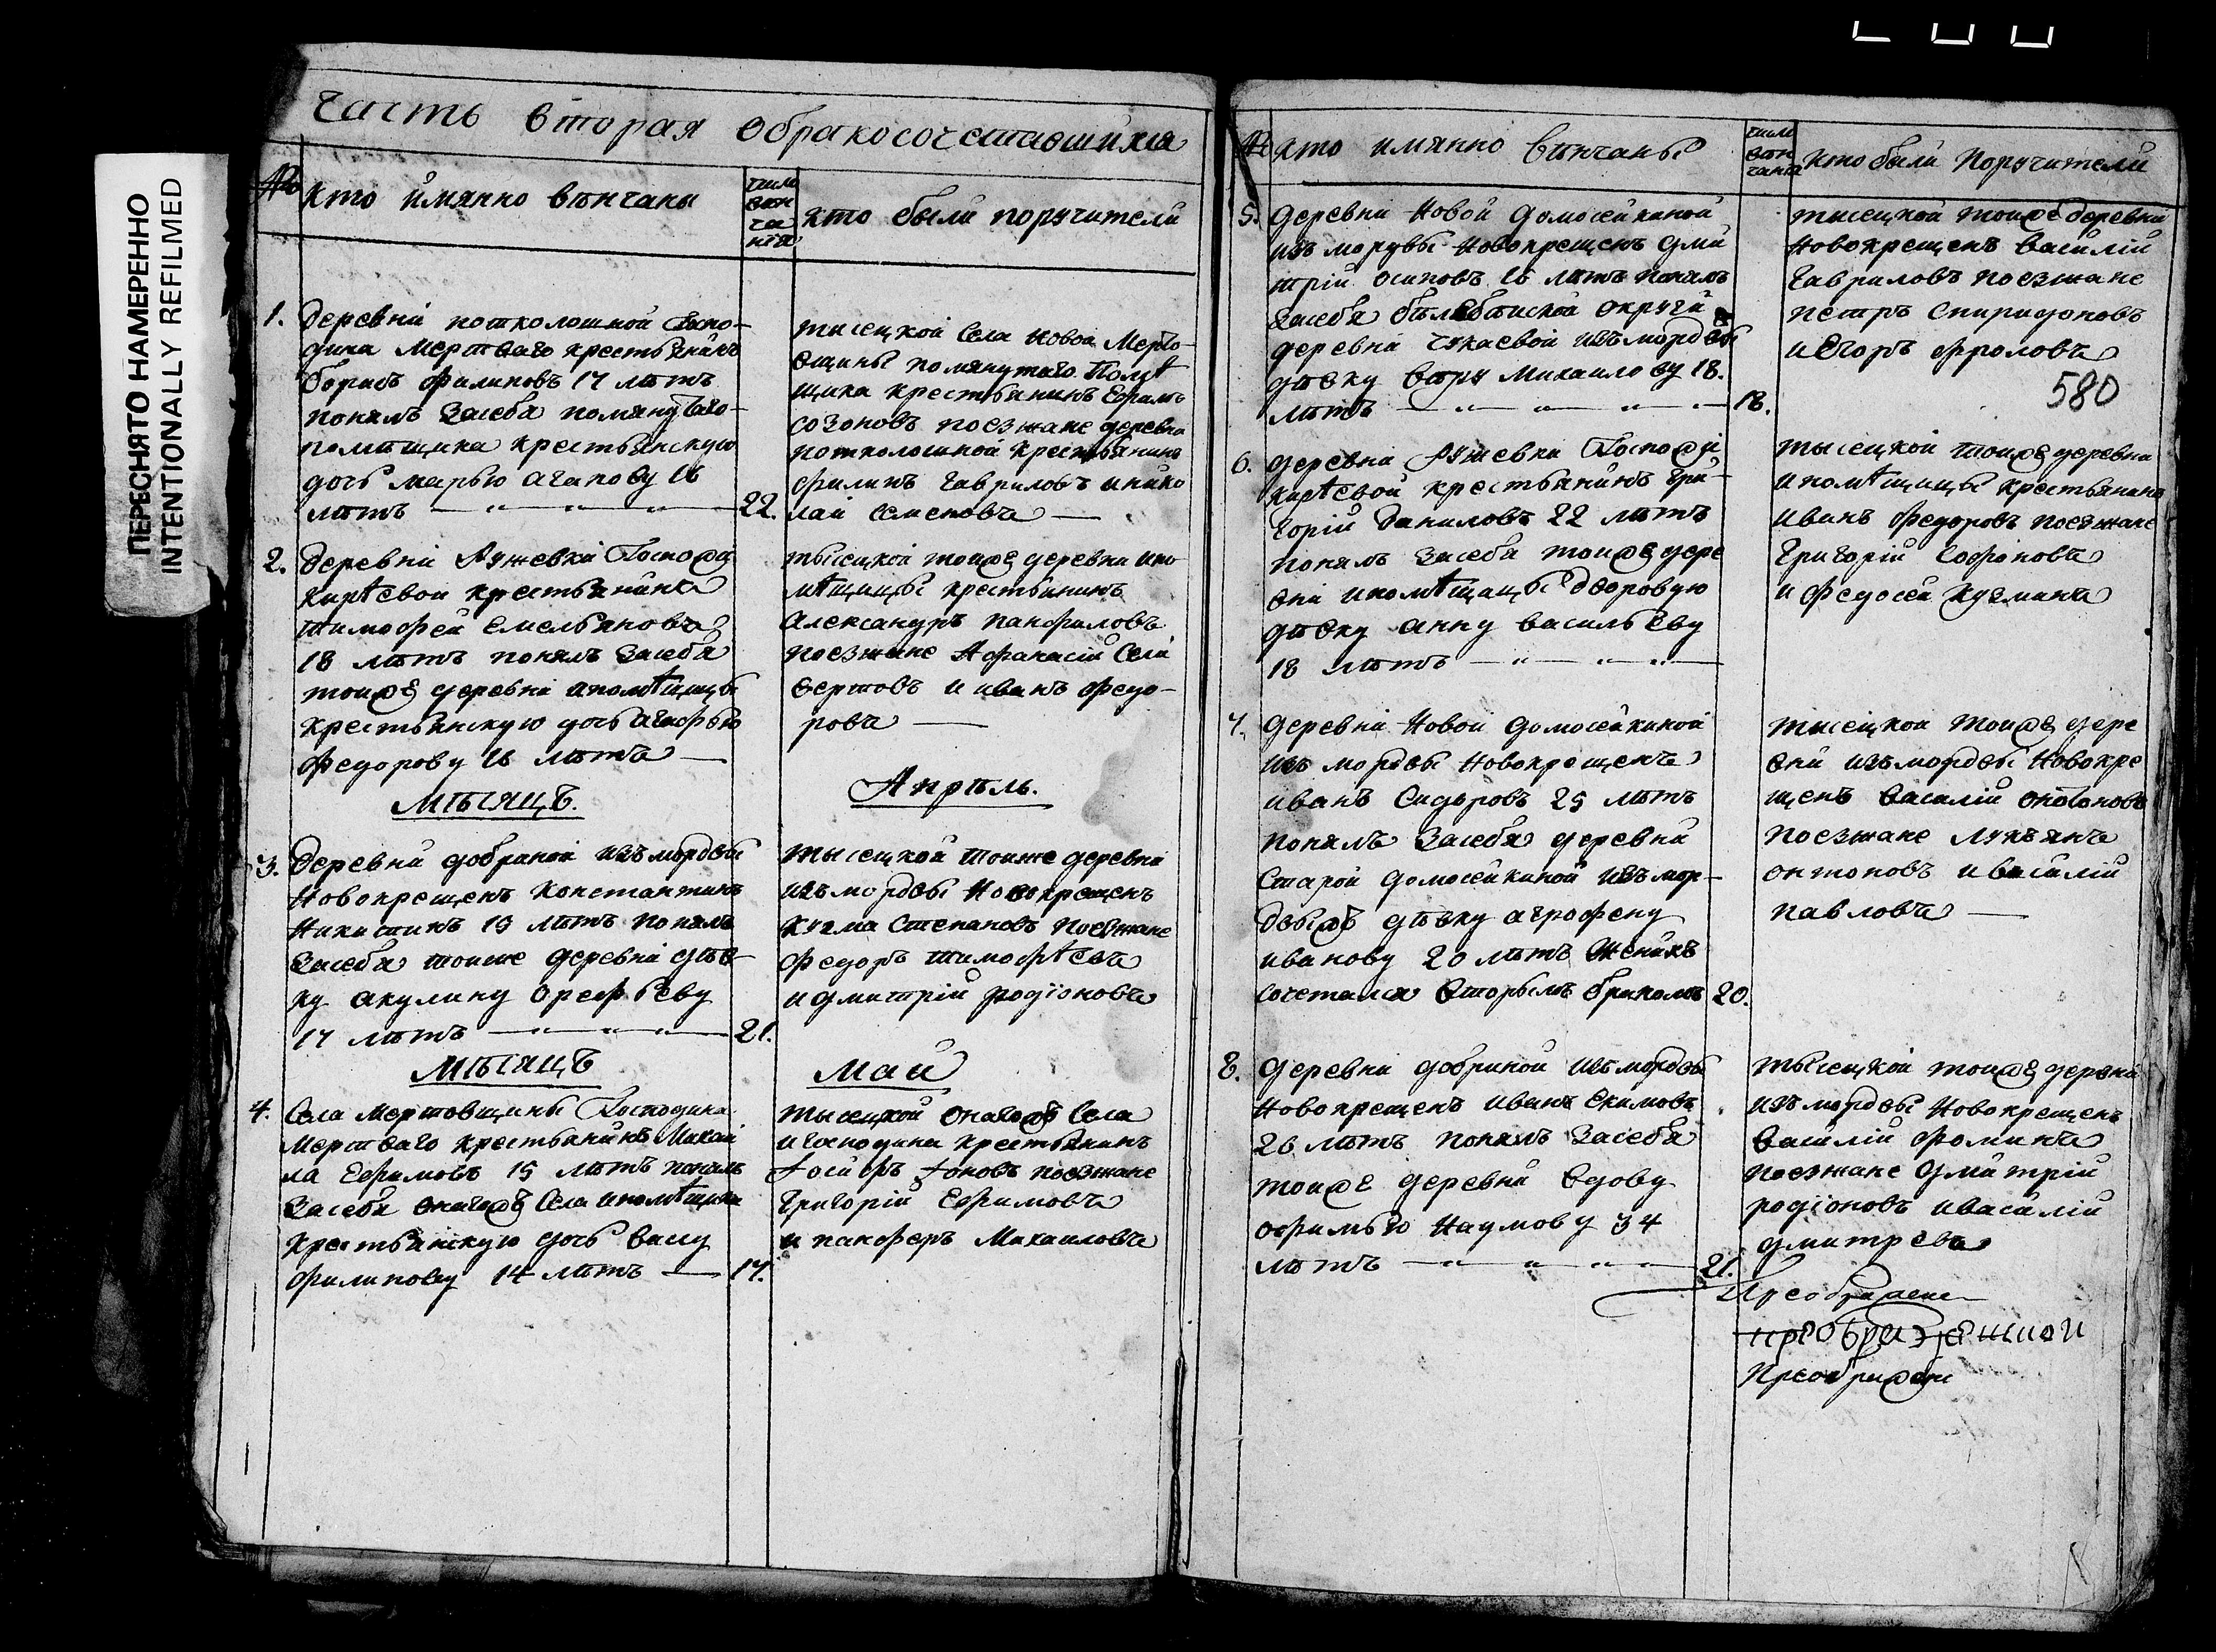 ПЕРЕСНЯТО НАМЕРЕННО
INTENTIONALLY REFILMED
Часть вторая обракосочетавшихся
№
кто имянно венчаны
число венчания
кто были поручители
1. деревни потколошной Госпо-
дина Мертваго крестьянинъ
борисъ филиповъ 17 лѣтъ
понялъ засебя помянутаго
помѣщика крестьянскую
дочь марью агапову 16
лѣтъ 22.
тысецкой села новой Мерто-
вщины помянутаго помѣ
щика крестьянинъ Ефимъ
созоновъ поезжане деревни
потколошной крестьянинъ
филипъ гавриловъ инико
лай семеновъ
2. деревни Аѵжевки Госпожи
Кирѣевой крестьянинъ
тимофей емельяновъ
18 лѣтъ понялъ засебя
тоиже деревни ипомѣщицы
крестьянскую дочь агафью
федорову 16 лѣтъ
тысецкой тоиже деревни ипо
мѣщицы крестьянинъ
Александръ панфиловъ
поезжане Афанасий Сели
верстовъ и иванъ федо-
ровъ
мѣсяцъ. Апрѣль.
3. деревни добриной изъ мордвы
Новокрещенъ Константинъ
Никитинъ 19 лѣтъ понялъ
засебя тоиже деревни дѣв-
ку акулину Орефьеву
17 лѣтъ 21.
тысецкой тоиже деревни
изъ мордвы Новокрещенъ
кузма Степановъ поезжане
федоръ тимофѣевъ
идмитрий родіоновъ
мѣсяцъ Маи
4. Села Мертовщины Господина
Мертваго крестьянинъ Михаи
ла Ефимовъ 15 лѣтъ понялъ
засебя онагожъ села ипомѣщика
крестьянскую дочь васу
филипову 14 лѣтъ 17.
тысецкой онагожъ села
игосподина крестьянинъ
поезжане
Григорий Ефимовъ
и панферъ Михаиловъ
№ кто имянно вѣнчаны
число вѣнчания
кто были поручители
5. деревни Новой домосейкиной
изъ мордвы Новокрещенъ дми
трій осиповъ 16 лѣтъ понялъ
засебя бѣлебейской округи
деревни чукаевой изъ мордвы
дѣвку вѣру михаилову 18.
лѣтъ 18.
тысецкой тоиже деревни
Новокрещенъ василій
гавриловъ поезжане
петръ спиридоновъ
иЕгоръ фроловъ
580
6. деревни Аѵжевки Госпожи
кирѣевой крестьянинъ Гри-
горій даниловъ 22 лѣтъ
понялъ засебя тоиже дере
вни ипомѣщицы дворовую
дѣвку анну васильеву
18 лѣтъ
тысецкой тоиже деревни
ипомѣщицы крестьянинъ
иванъ федоровъ поезжане
Григорій Софоновъ
и федосей кузминъ
7. деревни Новой домосейкиной
изъ мордвы Новокрещенъ
иванъ Сидоровъ 25 лѣтъ
понялъ засебя деревни
Старой домосейкиной изъ мор-
двыжъ дѣвку агрофену
иванову 20 лѣтъ женихъ
сочетался вторымъ бракомъ 20.
тысецкой тоиже дере
вни изъ мордвы новокре
щенъ василій
поезжане Лукъянъ
онтоновъ ивасилій
павловъ
8. деревни добриной изъ мордвы
Новокрещенъ иванъ екимовъ
26 лѣтъ понялъ засебя
тоиже деревни вдову
офимью Наумову 34
лѣтъ 21.
тысецкой тоиже деревни
изъ мордвы Новокрещенъ
василій фоминъ
поезжане дмитрій
родіоновъ ивасилій
дмитревъ